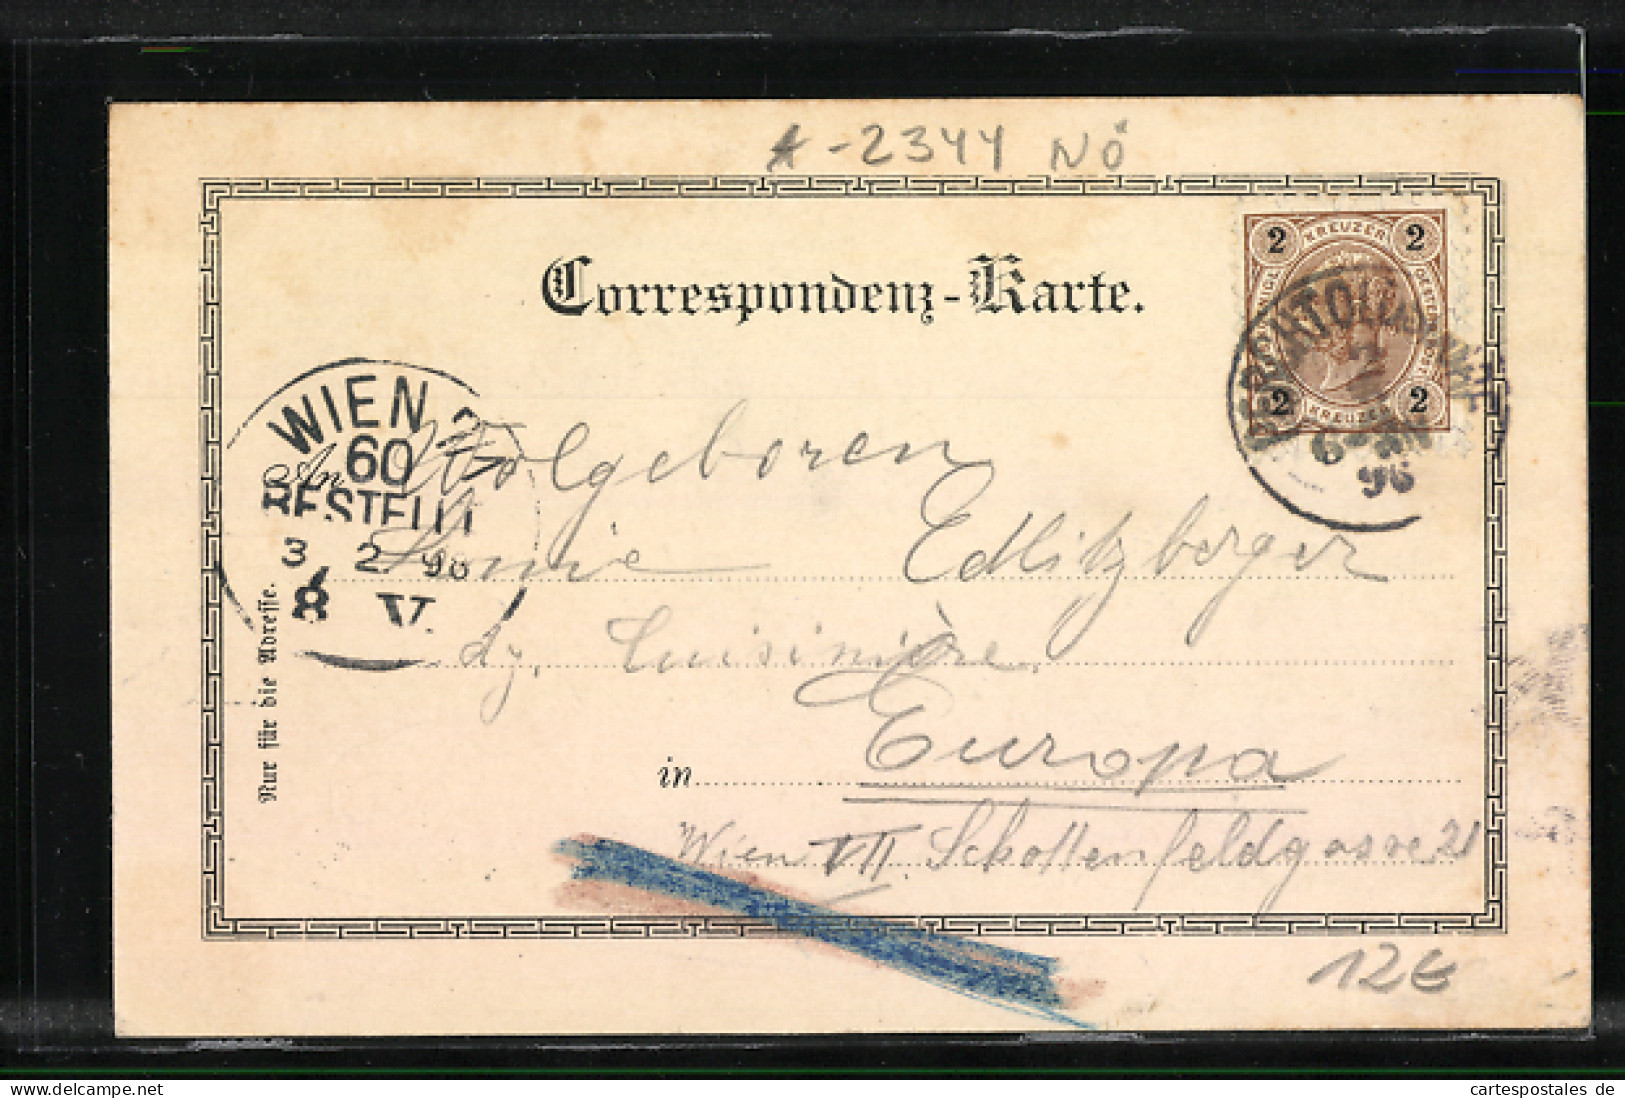 A-2344 NÖ
Correspondenz-Karte.
2 KREUZER 2
2 KREUZER 2
6
96
WIEN
60
BESTELLT
3 2 96
8 V.
An Wolgeboren
Edlitzberger
dz. Cuisinière
in Europa
Wien VII. Schottenfeldgasse 21
Nur für die Adresse.
12€
www.delcampe.net
cartespostales de